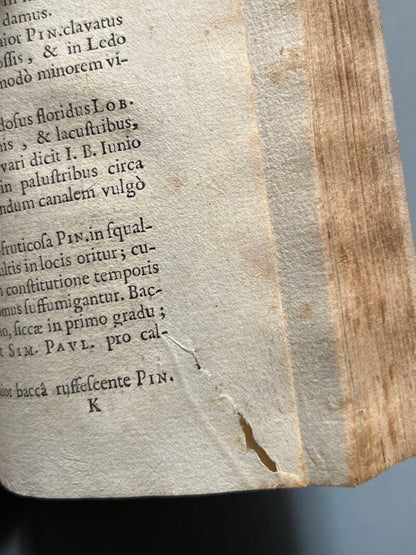 damus.
ior PIN. clavatus
ossis, & in Ledo
modò minorem vi-
dosus floridus LOB.
is, & lacustribus,
vari dicit I. B. Iunio
in palustribus circa
ndum canalem vulgò
fruticosa PIN. in squal-
ultis in locis oritur; cu-
n constitutione temporis
omus suffumigantur. Bac-
o, siccæ in primo gradu;
t SIM. PAVL. pro cal-
ior baccâ ruffescente PIN.
K